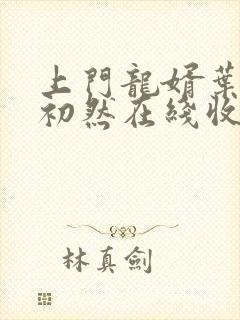 上門龍婿葉
初然在綫收
林真劍